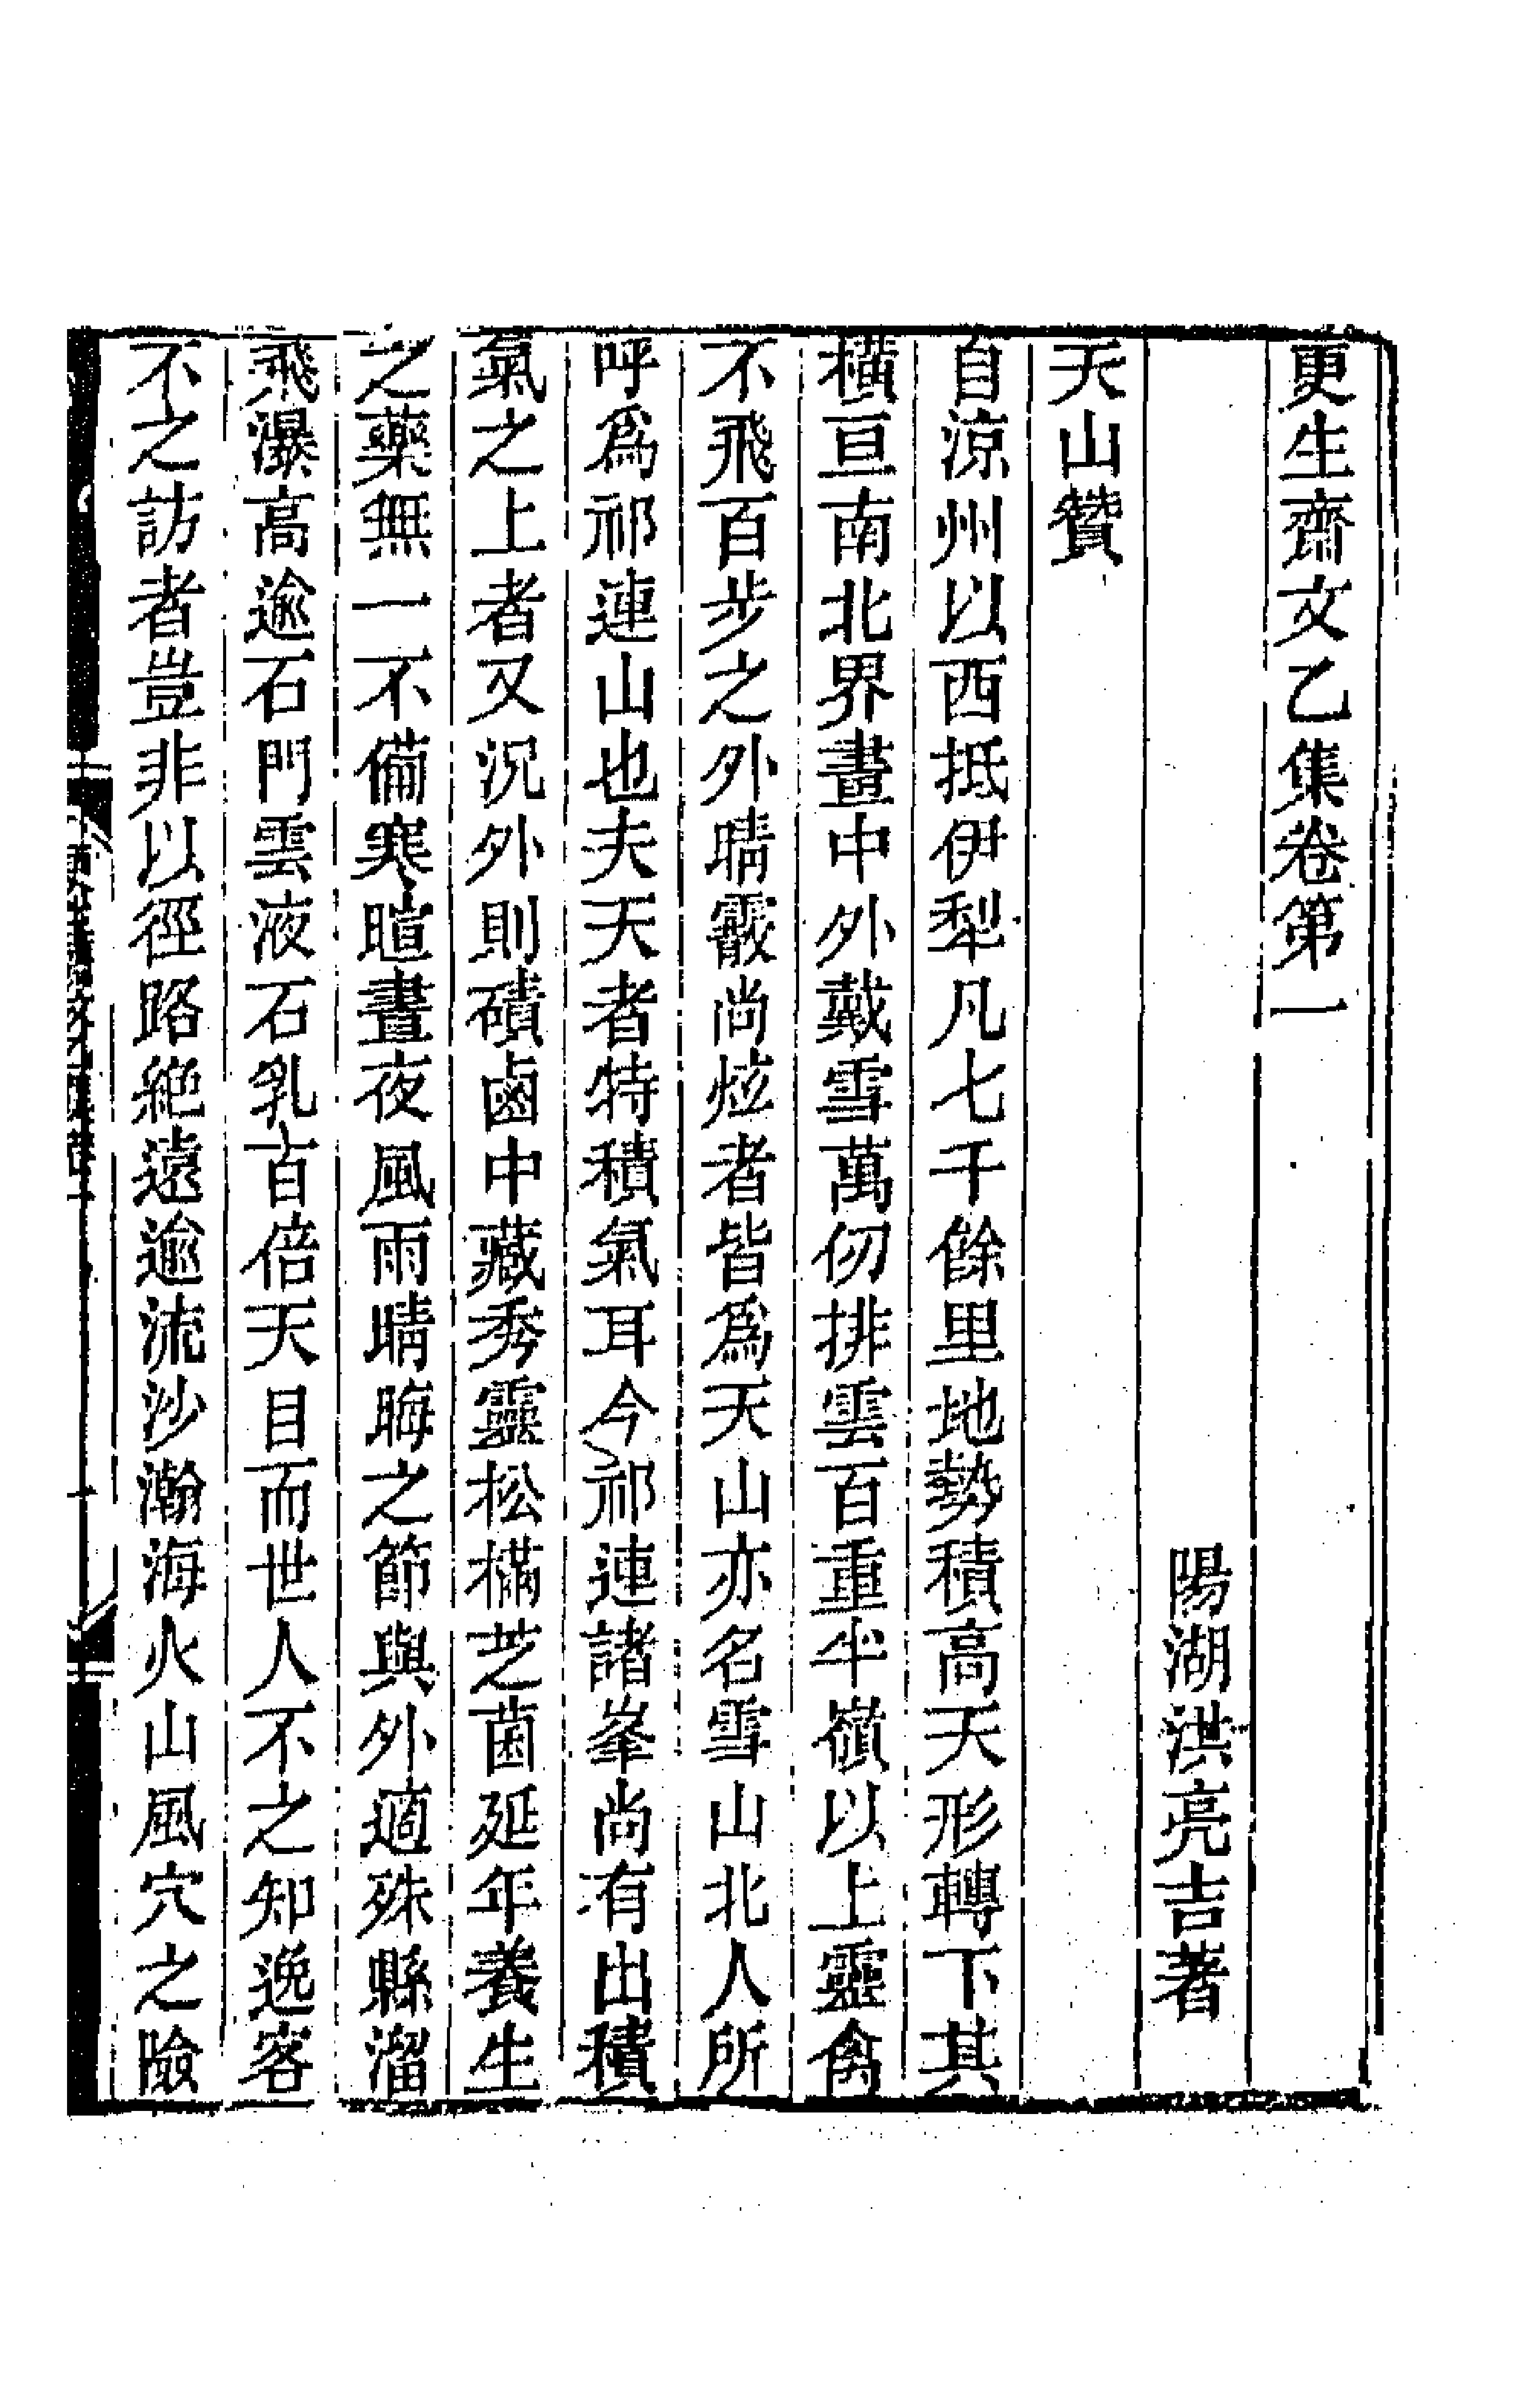 更生齋文乙集卷第一
陽湖洪亮吉著
天山贊
自涼州以西抵伊犁凡七千餘里地勢積高天形轉下其
橫亘南北界畫中外戴雪萬仞排雲百重半嶺以上靈禽
不飛百步之外晴霰尚炫者皆爲天山亦名雪山北人所
呼爲祁連山也夫天者特積氣耳今祁連諸峯尚有出積
氣之上者又況外則磧鹵中藏秀靈松樠芝菌延年養生
之藥無一不備寒暄晝夜風雨晴晦之節與外適殊縣溜
飛瀑高逾石門雲液石乳百倍天目而世人不之知逸客
不之訪者豈非以徑路絶遠逾流沙瀚海火山風穴之險